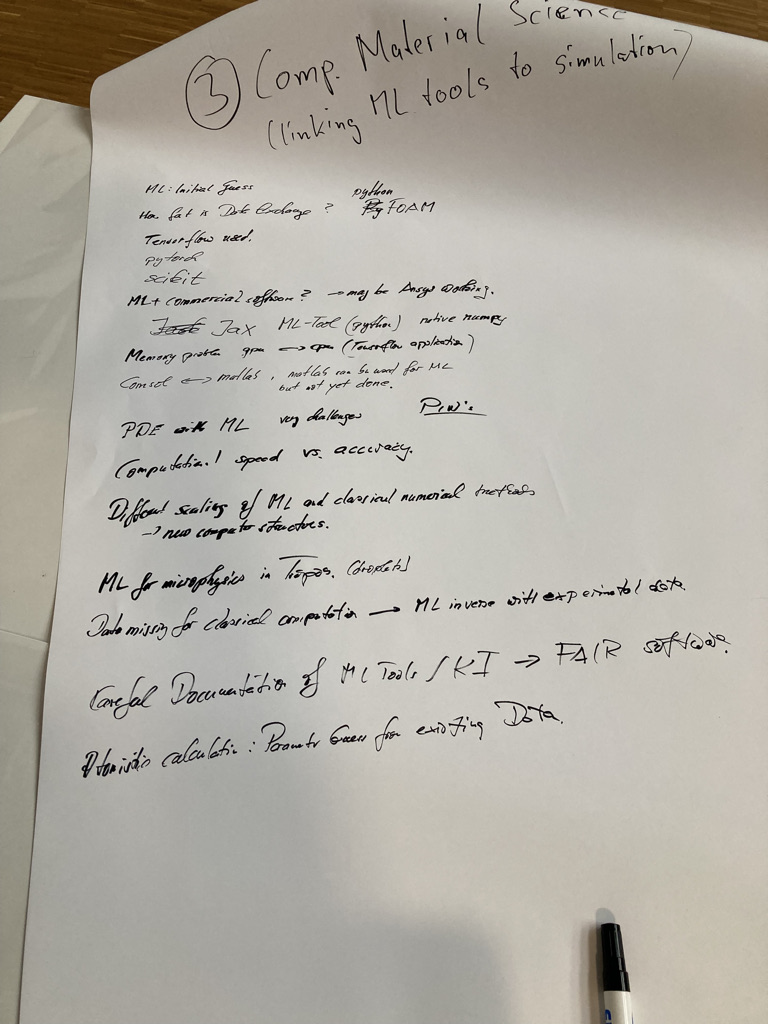 ③ Comp. Material Science
(linking ML tools to simulation)
ML: Initial Guess python
How fat is Data Exchange? FOAM
Tensorflow used.
pytorch
scikit
ML + commercial software? → may be Ansys working.
Jax ML-Tool (python) native numpy
Memory problem gpu ↔ cpu (Tensorflow application)
Comsol ↔ matlab, matlab can be used for ML
but not yet done.
PDE with ML very challenges
Computational speed vs. accuracy.
Different scaling of ML and classical numerical methods
→ new computer structures.
ML for microphysics in Tropos. (droplets)
Data missing for classical computation → ML inverse with experimental data.
Careful Documentation of ML Tools / KI → FAIR software.
Atomistic calculation: Parameter Guess from existing Data.